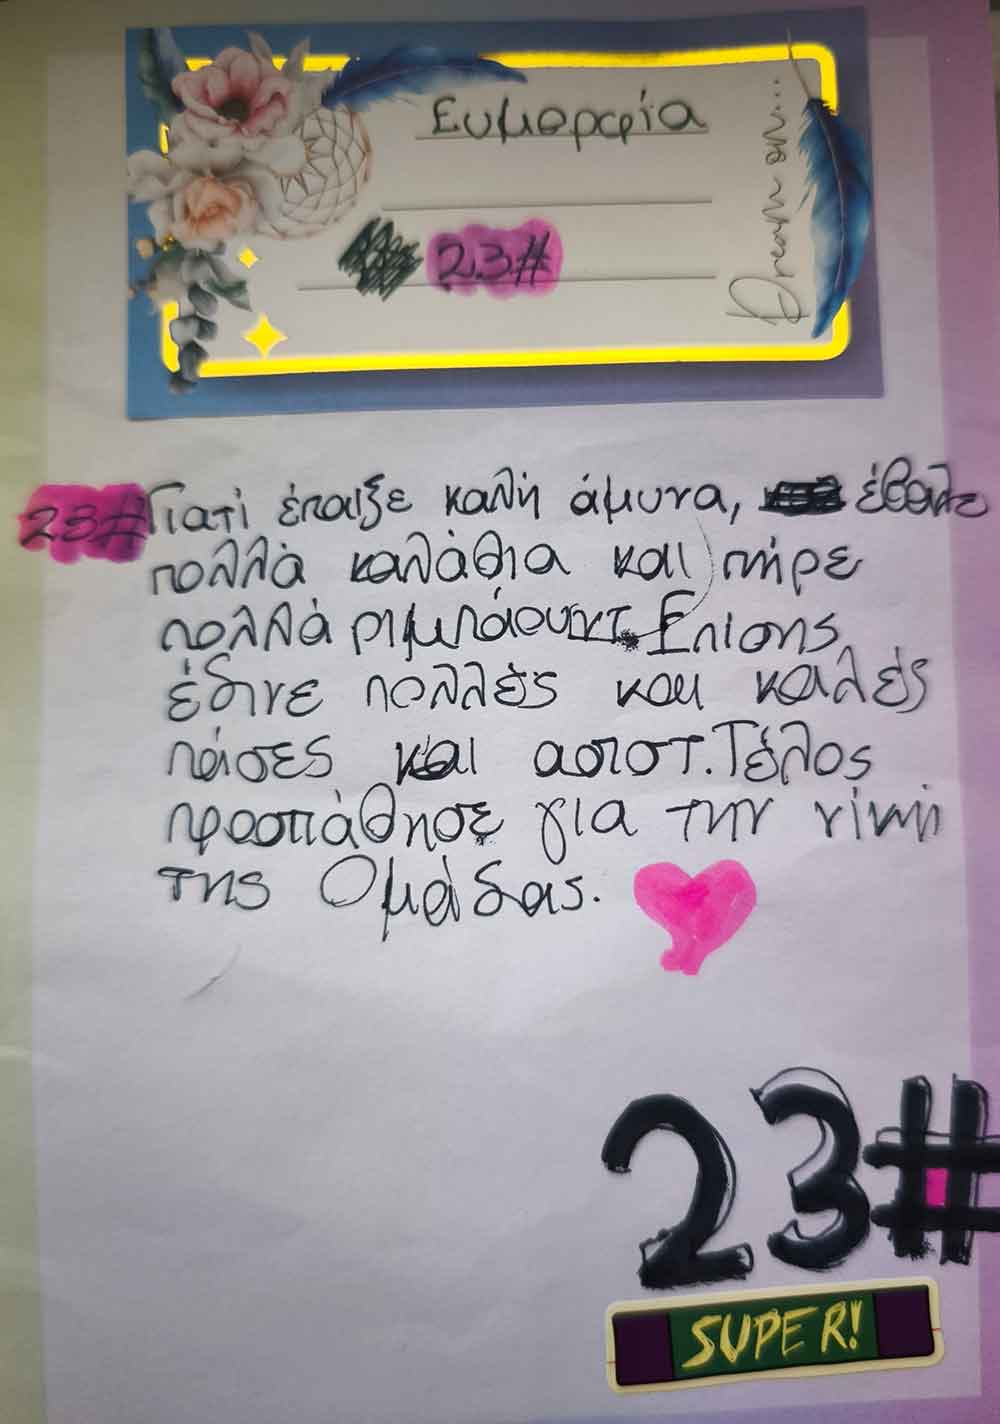 Ευμορφία
23#
Dream on...
23# Γιατί έπαιξε καλή άμυνα, έβαλε
πολλά καλάθια και πήρε
πολλά ριμπάουντ. Επίσης
έδινε πολλές και καλές
πάσες και ασιστ. Τέλος
προσπάθησε για την νίκη
της Ομάδας.
23#
SUPER!